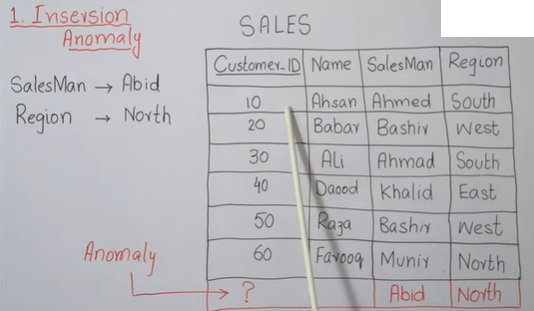 1. Insersion
Anomaly
SalesMan → Abid
Region → North
SALES
Customer_ID Name SalesMan Region
10 Ahsan Ahmed South
20 Babar Bashir West
30 Ali Ahmad South
40 Daood Khalid East
50 Raza Bashir West
60 Farooq Munir North
Anomaly → ? Abid North